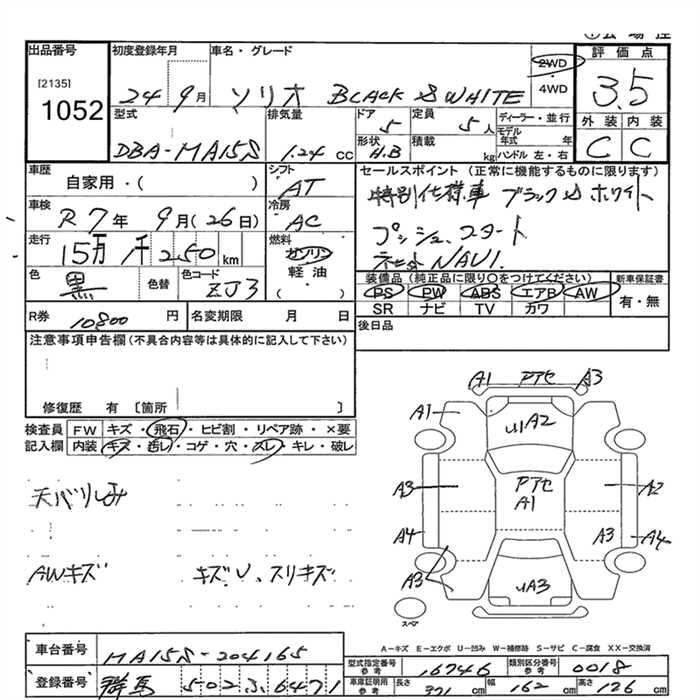 出品番号 初度登録年月 車名・グレード 2WD 評価点
[2135]
1052 24 9月 ソリオ BLACK & WHITE 4WD 3.5
型式 排気量 ドア 5 定員 5人 ディーラー・並行 外装 内装
DBA-MA15S 1.24 CC 形状 H.B 積載 kg モデル年式 年 ハンドル 左・右 C C
車歴 シフト セールスポイント (正常に機能するものに限ります)
自家用・( ) AT 特別仕様車 ブラック&ホワイト
車検 R7年 9月(26日) 冷房 AC プッシュスタート
走行 15万 1千 250 km 燃料 ガソリン 社外NAVI.
色 黒 色替 色コード ZJ3 軽油 ( ) 装備品 (純正品に限り○をつけてください) 新車保証書
PS PW ABS エアB AW 有・無
SR ナビ TV カワ
R券 10800 円 名変期限 月 日 後日品
注意事項申告欄(不具合内容等は具体的に記入して下さい)
修復歴 有 〔箇所 〕
検査員 FW キズ・飛石・ヒビ割・リペア跡・×要
記入欄 内装 キズ・汚レ・コゲ・穴・スレ・キレ・破レ
A1 アセ A3
A1 U1A2
天バリしみ A3 アセ A1 A2
A4 A3 A4
AWキズ キズU、スリキズ A3 UA3
スペア
A-キズ E-エクボ U-凹み W-補修跡 S-サビ C-腐食 XX-交換済
車台番号 MA15S-204165
型式指定番号 参考 16746 類別区分番号 参考 0018
登録番号 群馬 502ふ6471 車庫証明用 参考 長さ 371cm 幅 162cm 高さ 176cm